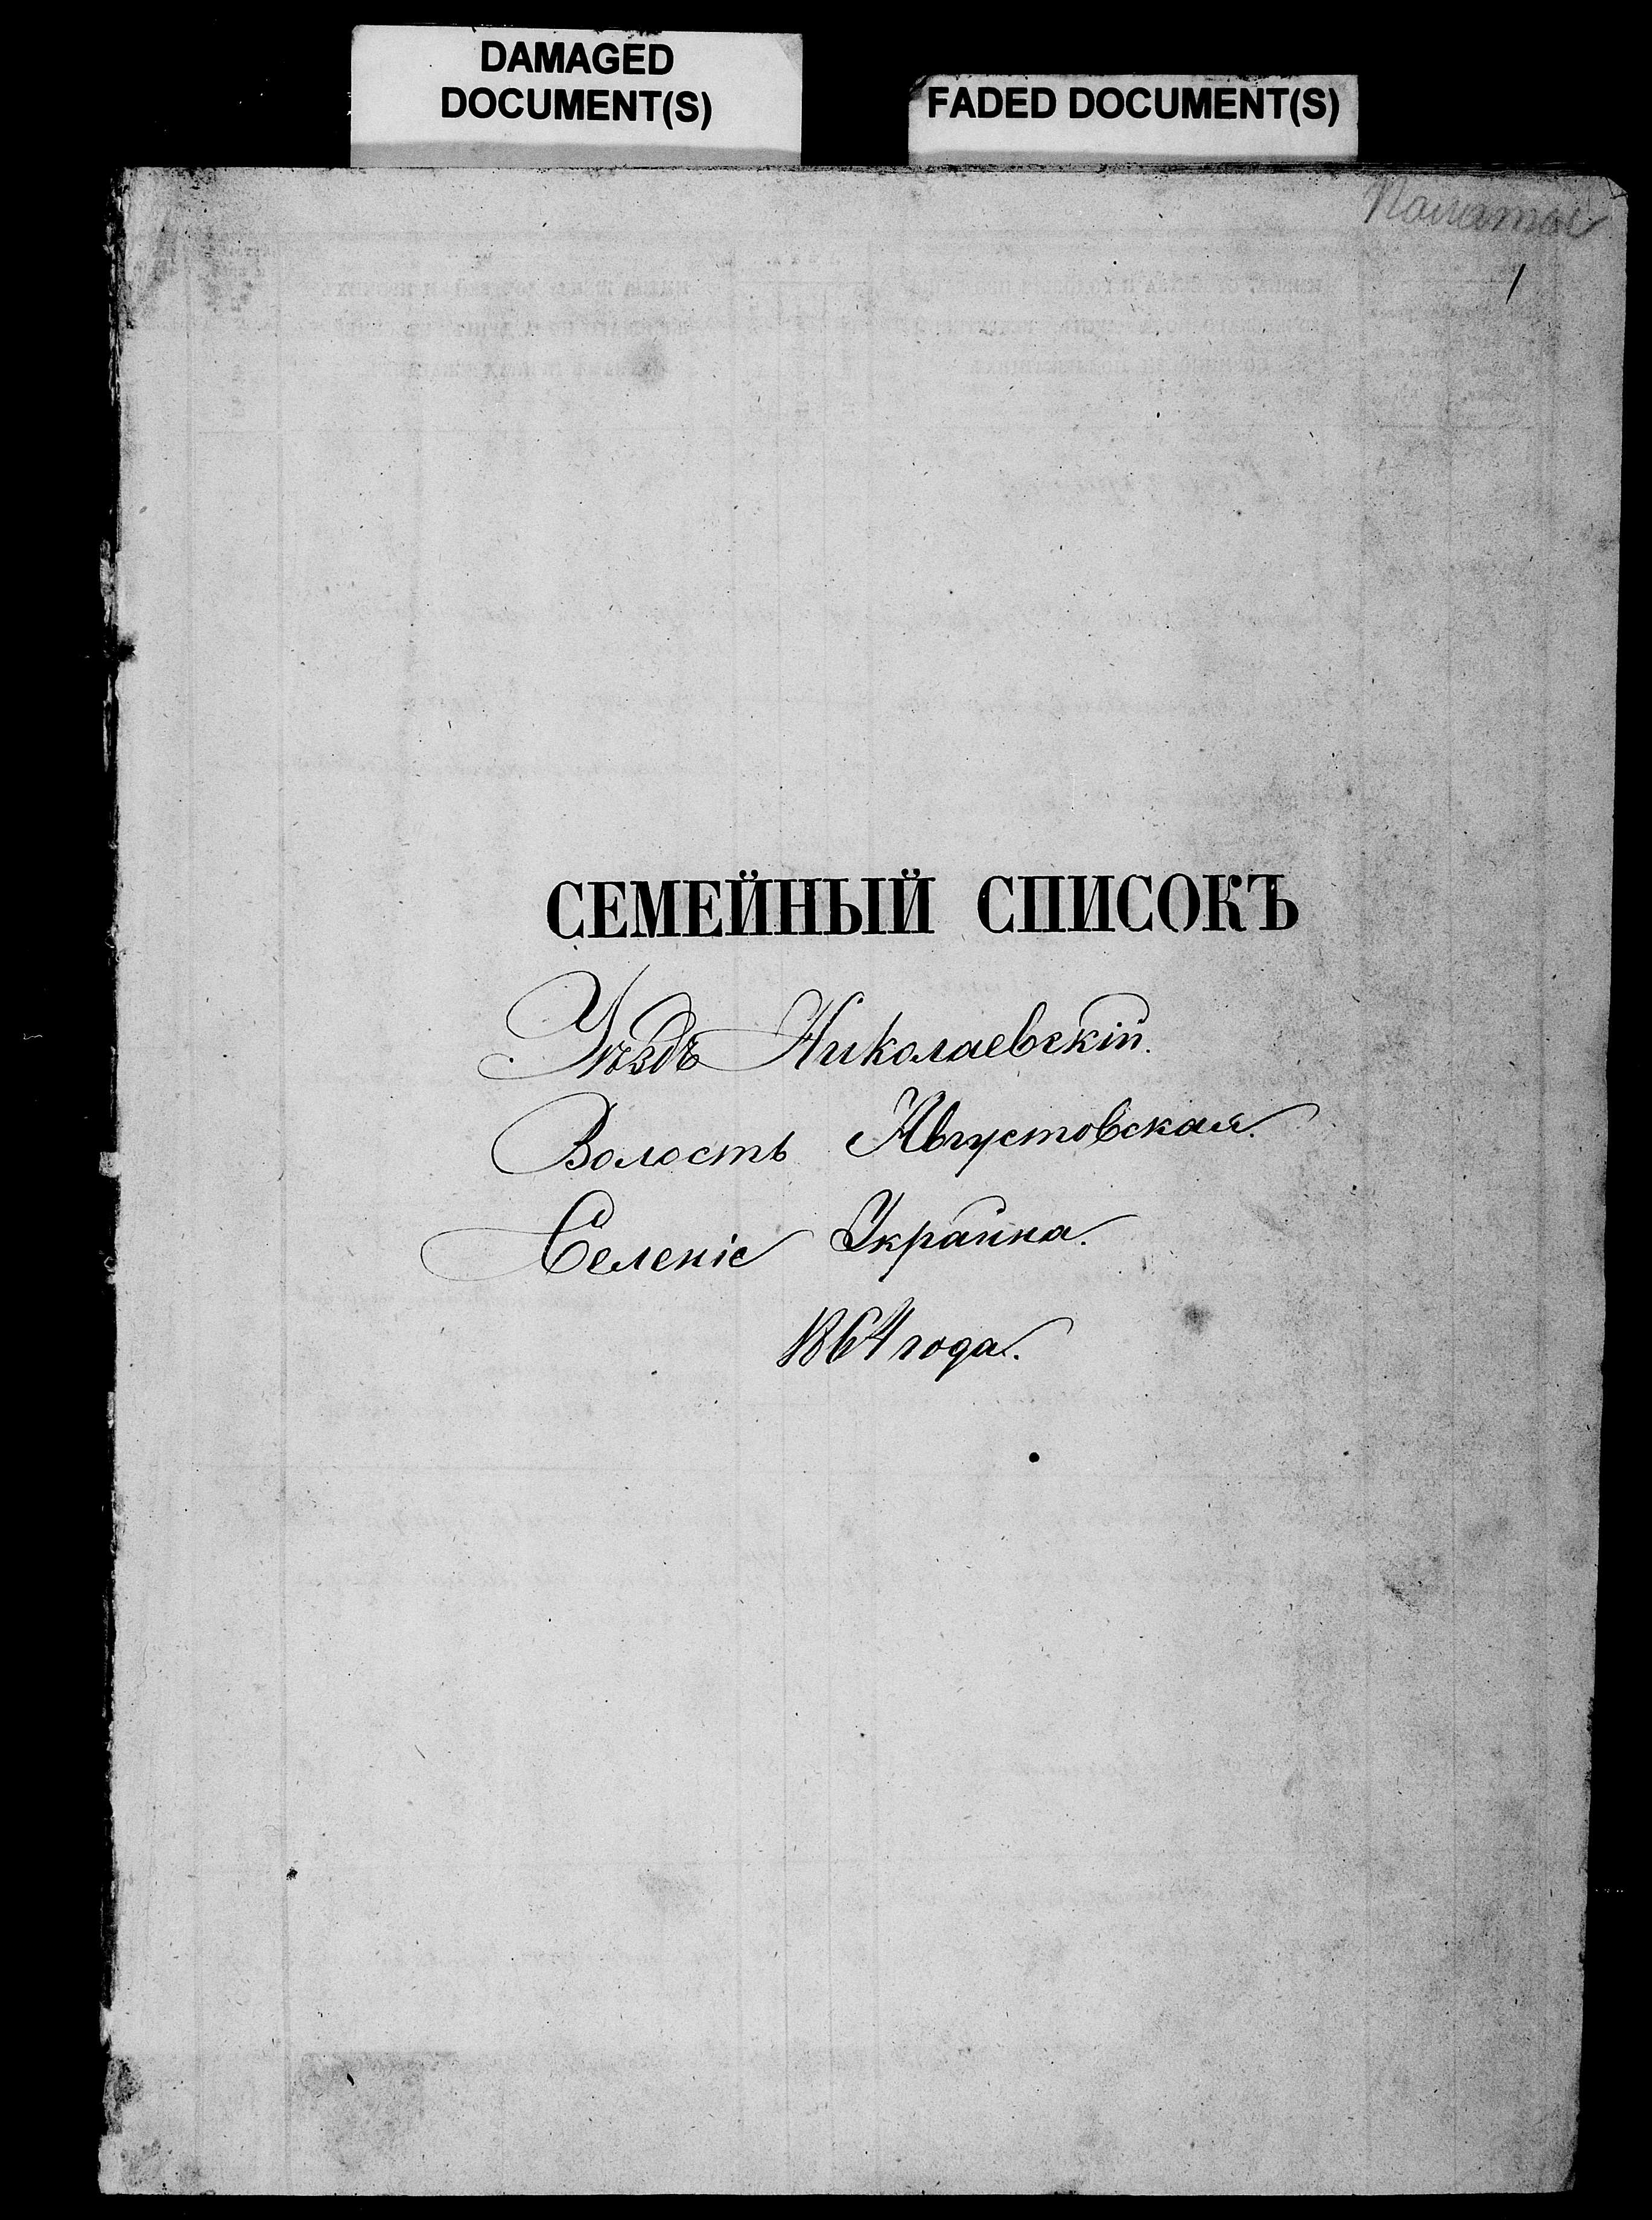 DAMAGED
DOCUMENT(S)
FADED DOCUMENT(S)
1
СЕМЕЙНЫЙ СПИСОКЪ
Уѣздъ Николаевскій.
Волость Августовская.
Селеніе Украинка.
1864 года.